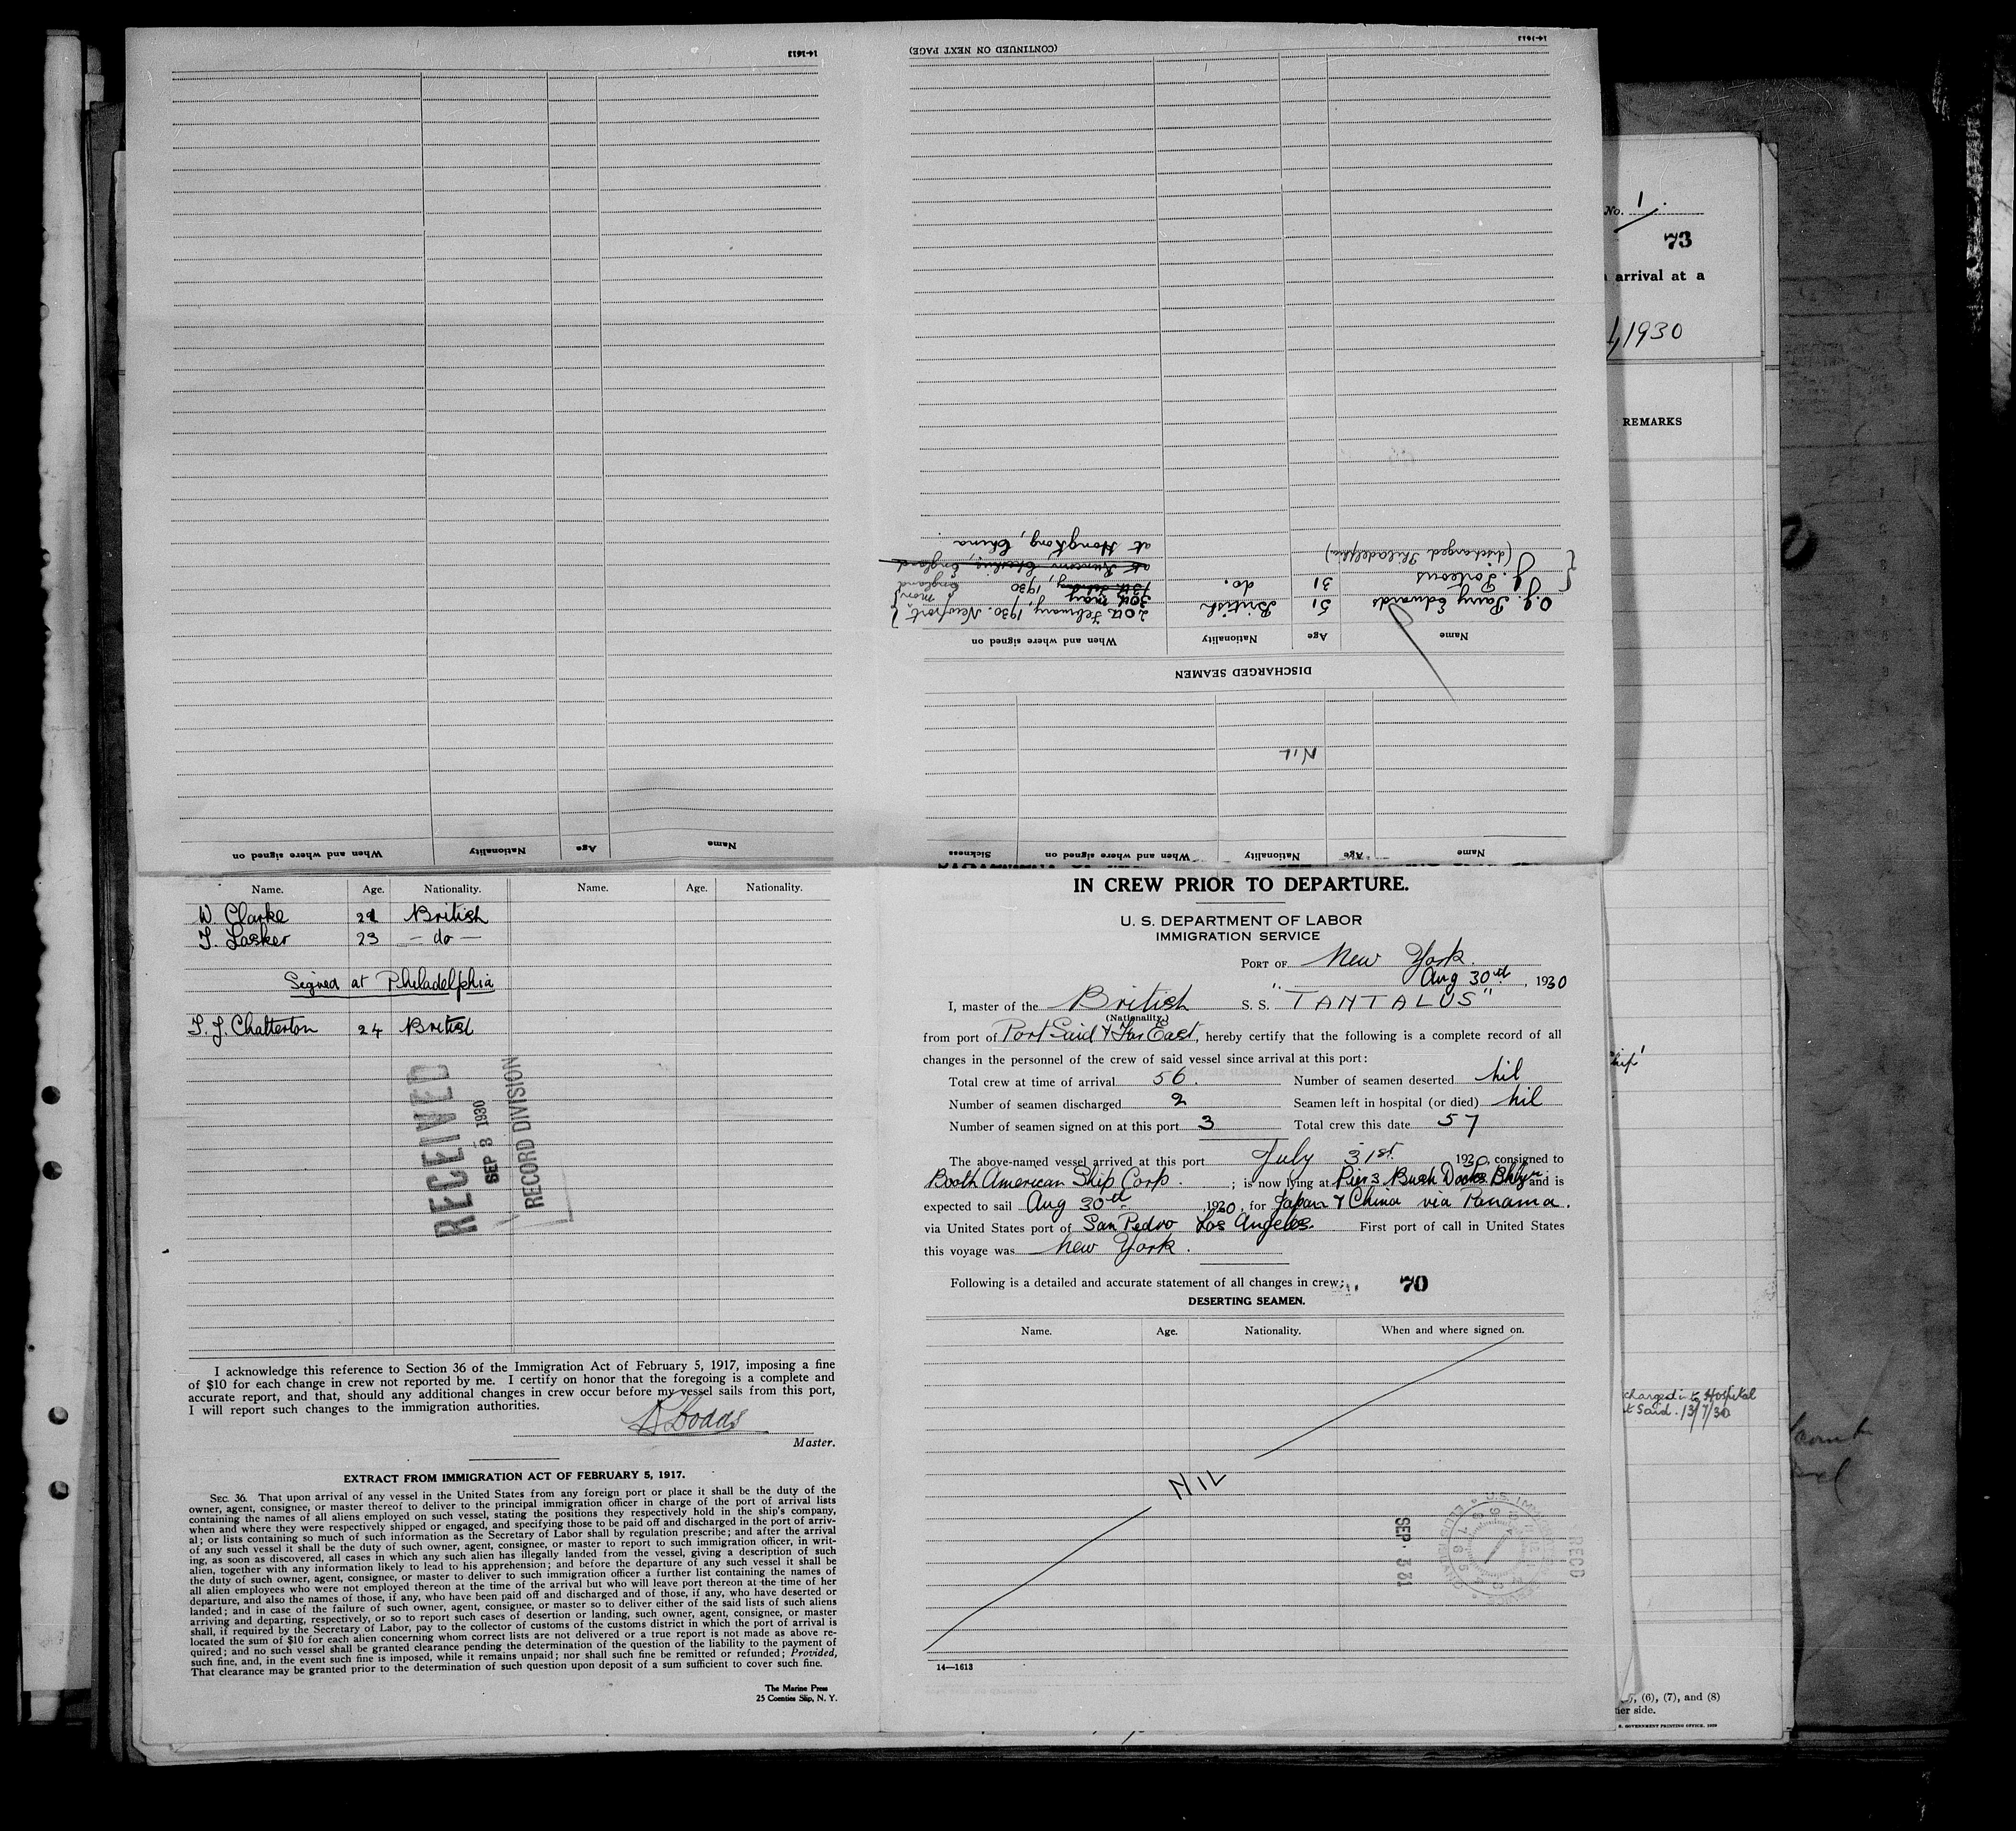 14-1613
(CONTINUED ON NEXT PAGE)
14-1613
at Hongkong, China
(discharged Philadelphia)
J. Porteous 31 do. 13th 1930
30th May
O.J. Parry Edwards 51 British 20th February, 1930. Newport, Mon
Name Age Nationality When and where signed on
DISCHARGED SEAMEN
NIL
Name Age Nationality When and where signed on Sickness
Name Age Nationality When and where signed on
Name. Age. Nationality. Name. Age. Nationality.
W Clarke 21 British
T. Lasker 23 — do —
Signed at Philadelphia
T. J. Chatterton 24 British
RECEIVED
SEP 3 1930
RECORD DIVISION
I acknowledge this reference to Section 36 of the Immigration Act of February 5, 1917, imposing a fine
of $10 for each change in crew not reported by me. I certify on honor that the foregoing is a complete and
accurate report, and that, should any additional changes in crew occur before my vessel sails from this port,
I will report such changes to the immigration authorities.
Dodds
Master.
EXTRACT FROM IMMIGRATION ACT OF FEBRUARY 5, 1917.
SEC. 36. That upon arrival of any vessel in the United States from any foreign port or place it shall be the duty of the
owner, agent, consignee, or master thereof to deliver to the principal immigration officer in charge of the port of arrival lists
containing the names of all aliens employed on such vessel, stating the positions they respectively hold in the ship's company,
when and where they were respectively shipped or engaged, and specifying those to be paid off and discharged in the port of arriv-
al; or lists containing so much of such information as the Secretary of Labor shall by regulation prescribe; and after the arrival
of any such vessel it shall be the duty of such owner, agent, consignee, or master to report to such immigration officer, in writ-
ing, as soon as discovered, all cases in which any such alien has illegally landed from the vessel, giving a description of such
alien, together with any information likely to lead to his apprehension; and before the departure of any such vessel it shall be
the duty of such owner, agent, consignee, or master to deliver to such immigration officer a further list containing the names of
all alien employees who were not employed thereon at the time of the arrival but who will leave port thereon at the time of her
departure, and also the names of those, if any, who have been paid off and discharged and of those, if any, who have deserted or
landed; and in case of the failure of such owner, agent, consignee, or master so to deliver either of the said lists of such aliens
arriving and departing, respectively, or so to report such cases of desertion or landing, such owner, agent, consignee, or master
shall, if required by the Secretary of Labor, pay to the collector of customs of the customs district in which the port of arrival is
located the sum of $10 for each alien concerning whom correct lists are not delivered or a true report is not made as above re-
quired; and no such vessel shall be granted clearance pending the determination of the question of the liability to the payment of
such fine, and, in the event such fine is imposed, while it remains unpaid; nor shall such fine be remitted or refunded; Provided,
That clearance may be granted prior to the determination of such question upon deposit of a sum sufficient to cover such fine.
The Marine Press
25 Coenties Slip, N. Y.
IN CREW PRIOR TO DEPARTURE.
U. S. DEPARTMENT OF LABOR
IMMIGRATION SERVICE
PORT OF New York.
Aug 30th, 1930
I, master of the British S. S. "TANTALUS"
(Nationality.)
from port of Port Said & Far East, hereby certify that the following is a complete record of all
changes in the personnel of the crew of said vessel since arrival at this port:
Total crew at time of arrival 56. Number of seamen deserted Nil
Number of seamen discharged 2 Seamen left in hospital (or died) Nil
Number of seamen signed on at this port 3 Total crew this date 57
The above-named vessel arrived at this port July 31st 1930, consigned to
Booth American Ship Corp.; is now lying at Pier 3 Bush Docks Bklyn and is
expected to sail Aug 30th 1930, for Japan & China via Panama.
via United States port of San Pedro Los Angeles. First port of call in United States
this voyage was New York.
Following is a detailed and accurate statement of all changes in crew:
70
DESERTING SEAMEN.
Name. Age. Nationality. When and where signed on.
NIL
SEP. 3 31
RECD
14—1613
No. 1.
73
arrival at a
1930
REMARKS
charged into Hospital
t Said. 13/7/30
(6), (7), and (8)
her side.
S. GOVERNMENT PRINTING OFFICE. 1929